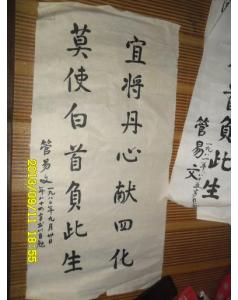 宜将丹心献四化
莫使白首負此生
管易文
一九八〇年九月廿日
管易文
2013/09/11 18:55